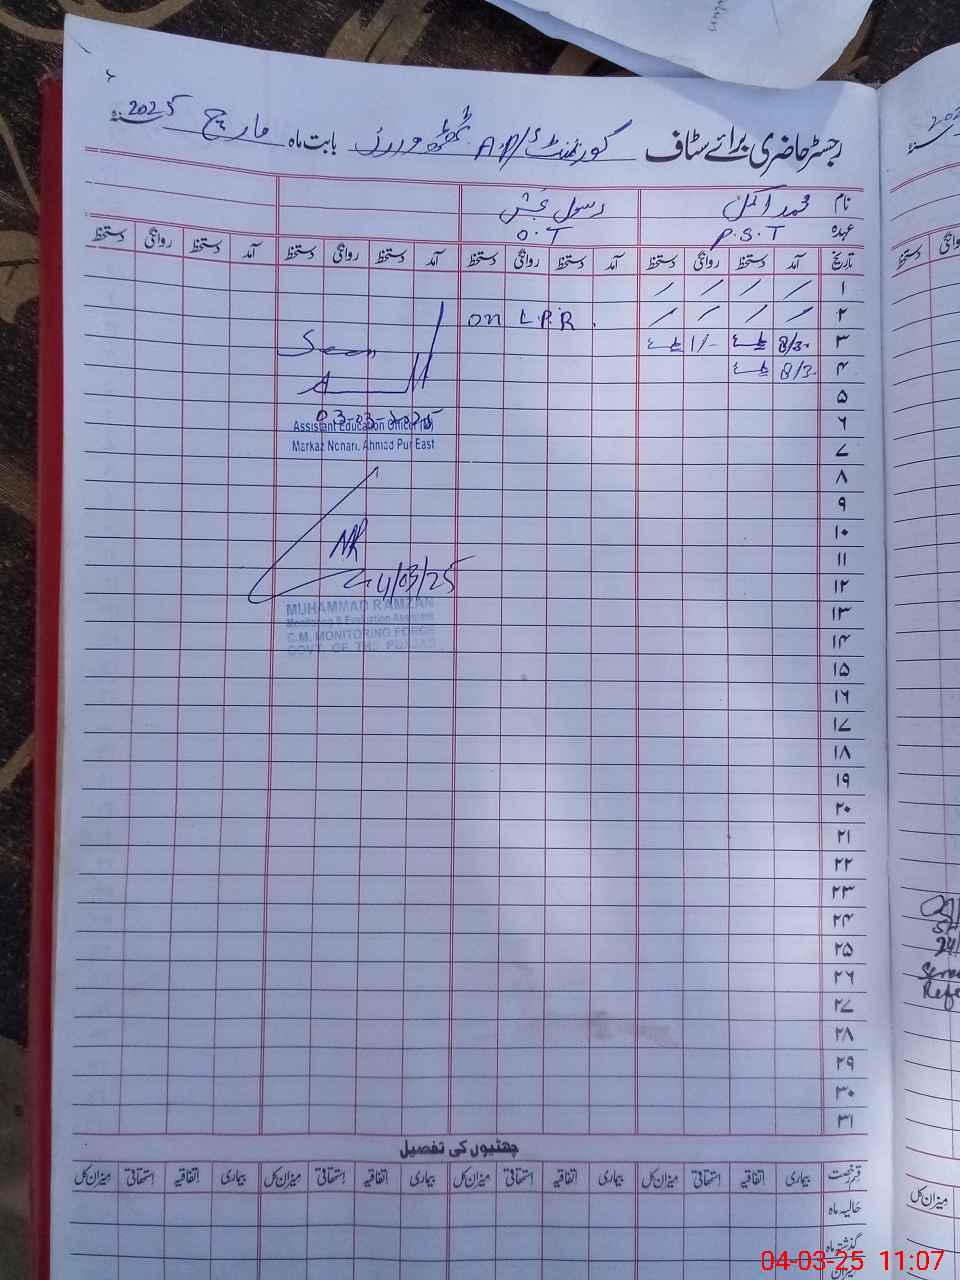 رجسٹر حاضری برائے سٹاف گورنمنٹ A.P/S بابت ماہ مارچ 2025
نام محمد اکمل رسول بخش
عہدہ P.S.T O.T
تاریخ آمد دستخط روانگی دستخط آمد دستخط روانگی دستخط آمد دستخط روانگی دستخط آمد دستخط روانگی دستخط
۱ / / / /
۲ / / / / on L.P.R.
۳ 8/3. 1/-
۴ 8/3.
۵
۶
۷
۸
۹
۱۰
۱۱
۱۲
۱۳
۱۴
۱۵
۱۶
۱۷
۱۸
۱۹
۲۰
۲۱
۲۲
۲۳
۲۴
۲۵
۲۶
۲۷
۲۸
۲۹
۳۰
۳۱
Seen
03-03-2025
Assistant Education Officer (M)
Markaz Nonari, Ahmad Pur East
MR
4/03/25
MUHAMMAD RAMZAN
Monitoring & Evaluation Assistant
C.M. MONITORING FORCE
GOVT. OF THE PUNJAB
چھٹیوں کی تفصیل
قسم رخصت بیماری اتفاقیہ استحقاقی میزان کل بیماری اتفاقیہ استحقاقی میزان کل بیماری اتفاقیہ استحقاقی میزان کل بیماری اتفاقیہ استحقاقی میزان کل
حالیہ ماہ
گذشتہ ماہ
میزان
میزان کل
04-03-25 11:07